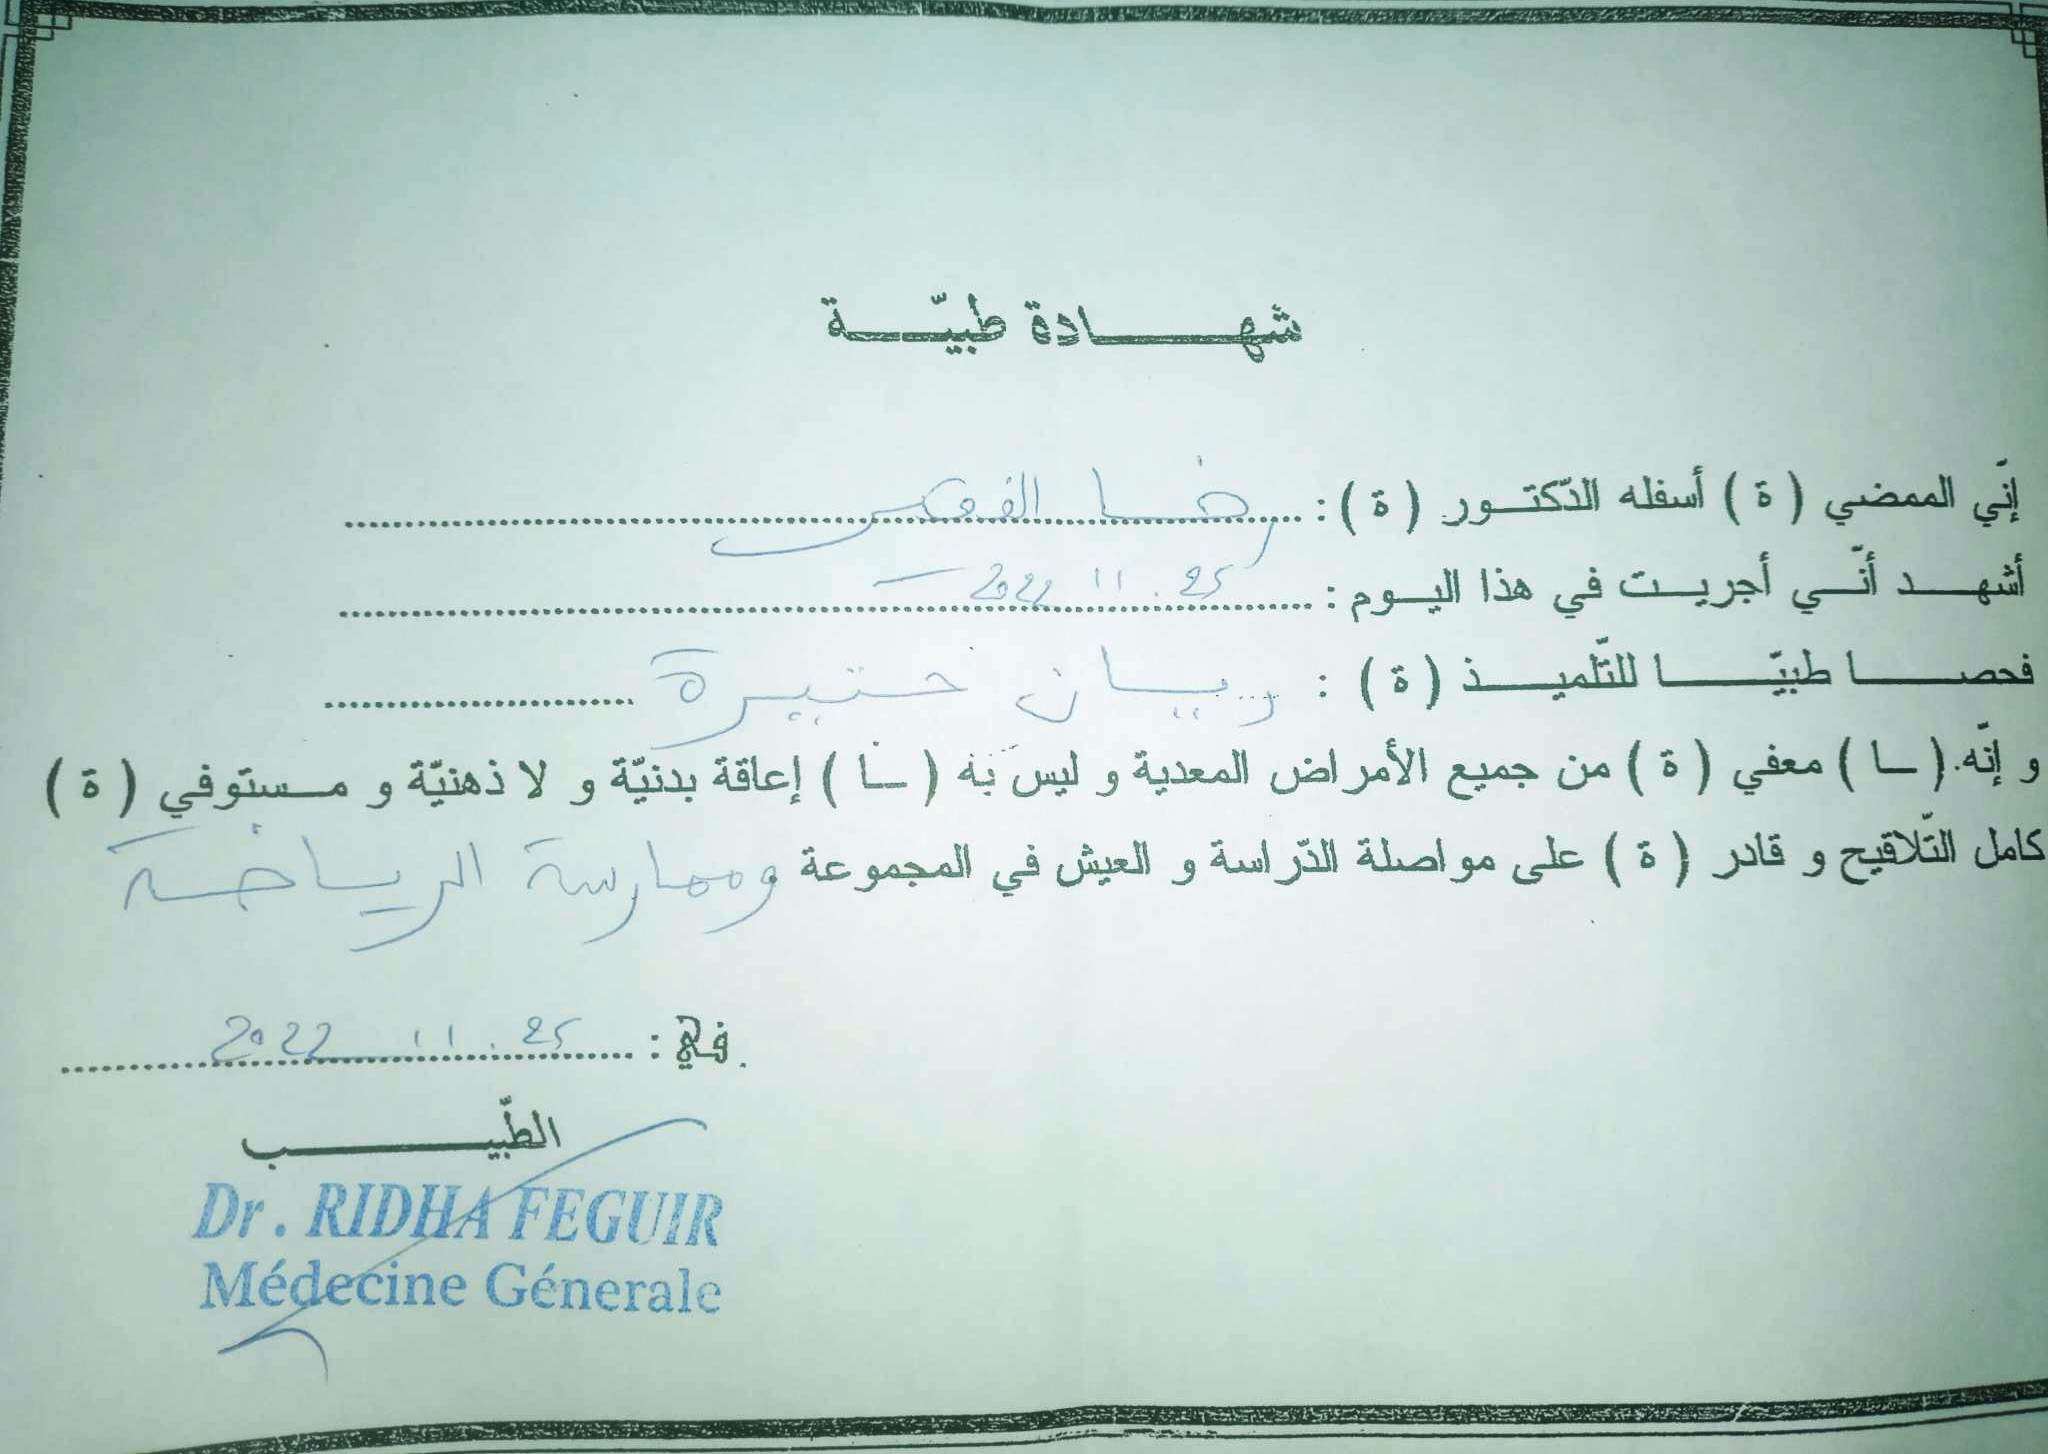 شهادة طبيّة
إنّي الممضي ( ة ) أسفله الدّكتور ( ة ) : رضا الفقير
أشهد أنّي أجريت في هذا اليوم : 25 . 11 2022
فحصا طبيّا للتّلميذ ( ة ) : ريان ختيرة
و إنّه ( ـا ) معفي ( ة ) من جميع الأمراض المعدية و ليس به ( ـا ) إعاقة بدنيّة و لا ذهنيّة و مستوفي ( ة )
كامل التّلاقيح و قادر ( ة ) على مواصلة الدّراسة و العيش في المجموعة وممارسة الرياضة
في : 25 . 11 2022
الطّبيب
Dr . RIDHA FEGUIR
Médecine Génerale